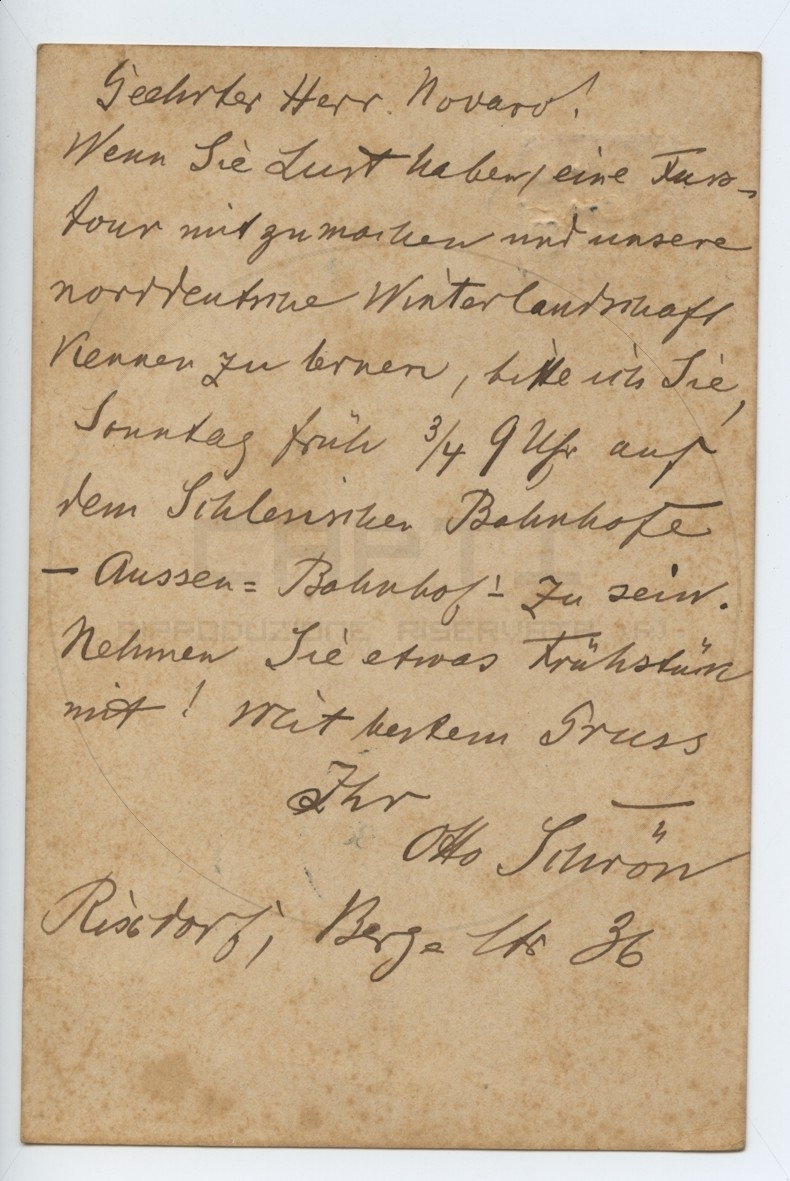 Geehrter Herr Novaro!
Wenn Sie Lust haben, eine Fuss-
tour mitzumachen und unsere
norddeutsche Winterlandschaft
kennen zu lernen, bitte ich Sie,
Sonntag früh 3/4 9 Uhr auf
dem Schlesischen Bahnhofe
— Aussen=Bahnhof — zu sein.
Nehmen Sie etwas Frühstück
mit! Mit bestem Gruss
Ihr
Otto Schrön
Rixdorf, Berg=Str 36
CAPTI
RIPRODUZIONE RISERVATA